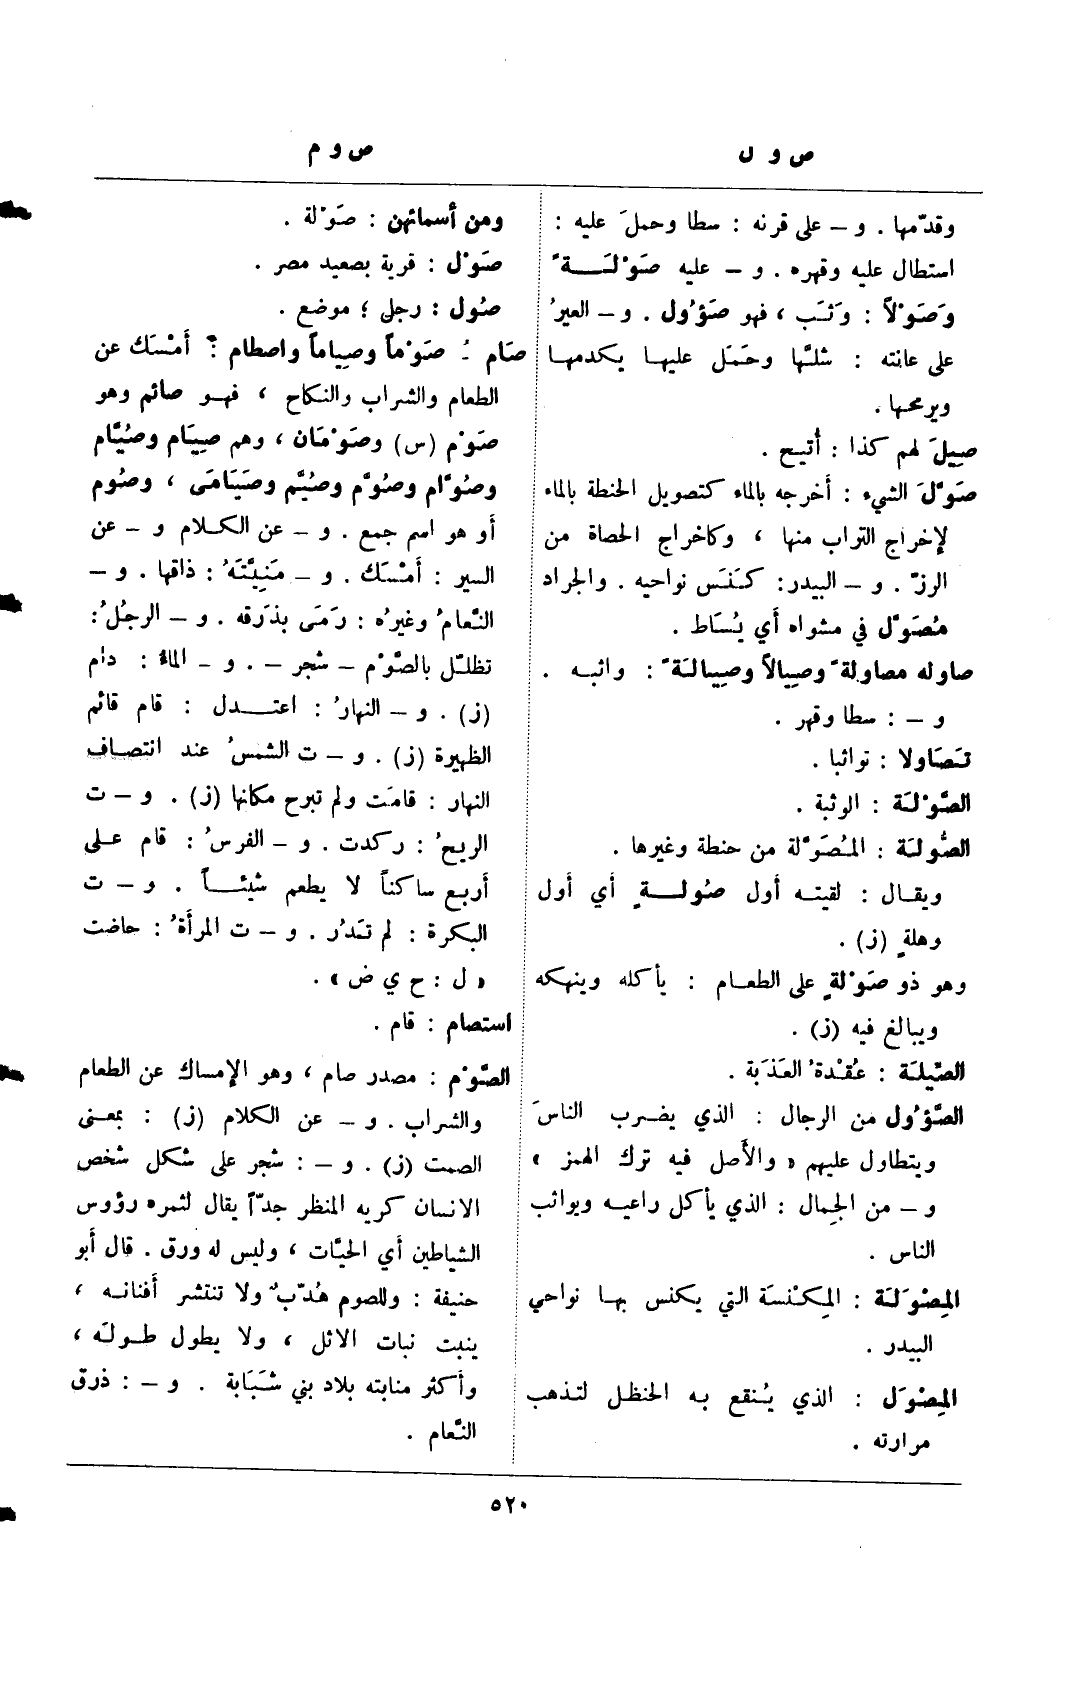 ص و ل
ص و م
وقدّمها . و — على قرنه : سطا وحملَ عليه :
استطال عليه وقهره . و — عليه صَوْلَـــةً
وَصَوْلاً : وَثَب ، فهو صَؤُول . و — العيرُ
على عانته : شلَّها وحَمَل عليهـا يكدمهـا
ويرمحها .
صِيلَ لهم كذا : أُتيح .
صَوَّلَ الشيء : أخرجه بالماء كتصويل الحنطة بالماء
لإخراج التراب منها ، وكاخراج الحصاة من
الرزّ . و — البيدر : كَنَس نواحيه . والجراد
مُصَوَّل في مشواه أي يُسَاط .
صاوله مصاولةً وصِيالاً وصِيالَةً : واثبـه .
و — : سطا وقهر .
تَصَاولا : تواثبا .
الصَّوْلَة : الوثبة .
الصُّولَة : المُصَوَّلة من حنطة وغيرها .
ويقـال : لقيتـه أول صُولـــةٍ أي أول
وهلةٍ (ز) .
وهو ذو صَوْلةٍ على الطعـام : يأكله وينهكه
ويبالغ فيه (ز) .
الصِّيلَة : عُقْدةُ العَذَبة .
الصَّؤُول من الرجال : الذي يضـرب الناسَ
ويتطاول عليهم « والأصل فيه ترك الهمز »
و — من الجِمال : الذي يأكل راعيـه ويواثب
الناس .
المِصْوَلَة : المِكْنَسَة التي يكنس بهـا نواحي
البيدر .
المِصْوَل : الذي يُنقع بـه الحنظـل لتـذهب
مرارته .
ومن أسمائهن : صَوْلة .
صَوْل : قرية بصعيد مصر .
صُول : رجل ؛ موضع .
صَام ُ صَوْماً وصِياماً واصطام : أَمْسَك عن
الطعام والشراب والنكاح ، فهـو صائم وهو
صَوْم (س) وصَوْمَان ، وهم صِيَام وصُيَّام
وصُوَّام وصُوَّم وصُيَّم وصَيَامَى ، وصُوم
أو هو اسم جمع . و — عن الكـلام و — عن
السير : أَمْسَك . و — مَنِيَّتَهُ : ذاقها . و —
النَّعامُ وغيرُه : رَمَى بذَرَقه . و — الرجُلُ :
تظلّل بالصَّوْم — شجر — . و — الماءُ : دام
(ز) . و — النهارُ : اعتـــدل : قام قائم
الظهيرة (ز) . و — ت الشمسُ عند انتصـاف
النهار : قامَت ولم تبرح مكانها (ز) . و — ت
الريحُ : ركدت . و — الفرسُ : قام عـلى
أربع ساكناً لا يطعم شيئـــاً . و — ت
البكرة : لم تَدُر . و — ت المرأةُ : حاضت
« ل : ح ي ض » .
استصام : قام .
الصَّوْم : مصدر صام ، وهو الإمساك عن الطعام
والشراب . و — عن الكلام (ز) : بمعنى
الصمت (ز) . و — : شجر على شكل شخص
الانسان كريه المنظر جدّاً يقال لثمره رؤوس
الشياطين أي الحيَّات ، وليس له ورق . قال أبو
حنيفة : وللصوم هُدَّبٌ ولا تنتشر أفنانـه ،
ينبت نبات الاثل ، ولا يطول طـولَه ،
وأكثر منابته بلاد بني شَبَابة . و — : ذرق
النَّعام .
٥٢٠